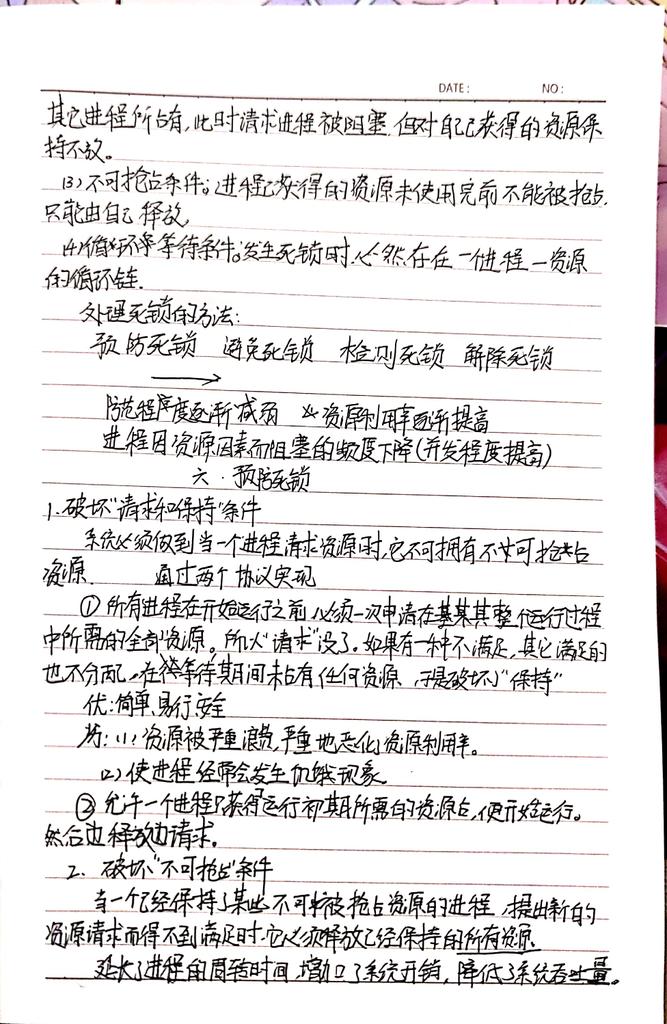 DATE: NO:
其它进程所占有,此时请求进程被阻塞,但对自己已获得的资源保
持不放。
(3)不可抢占条件:进程已获得的资源未使用完前不能被抢占,
只能由自己释放
(4)循环等待条件:发生死锁时,必然存在一进程—资源
的循环链.
处理死锁的方法:
预防死锁 避免死锁 检测死锁 解除死锁
防范程度逐渐减弱 资源利用率逐渐提高
进程因资源因素而阻塞的频度下降(并发程度提高)
六.预防死锁
1.破坏"请求和保持"条件
系统必须做到当一个进程请求资源时,它不可拥有不可抢占
资源. 通过两个协议实现
①所有进程在开始运行之前,必须一次申请在其整个运行过程
中所需的全部资源。所以"请求"没了.如果有一种不满足,其它满足的
也不分配,在等待期间未占有任何资源,于是破坏了"保持"
优:简单,易行,安全
(1)资源被严重浪费,严重地恶化资源利用率。
(2)使进程经常会发生饥饿现象
②允许一个进程只获得运行初期所需的资源后,便开始运行。
然后边释放边请求。
2.破坏"不可抢占"条件
当一个已经保持了某些不可被抢占资源的进程,提出新的
资源请求而得不到满足时,它必须释放已经保持的所有资源.
延长了进程的周转时间,增加了系统开销,降低了系统吞吐量。